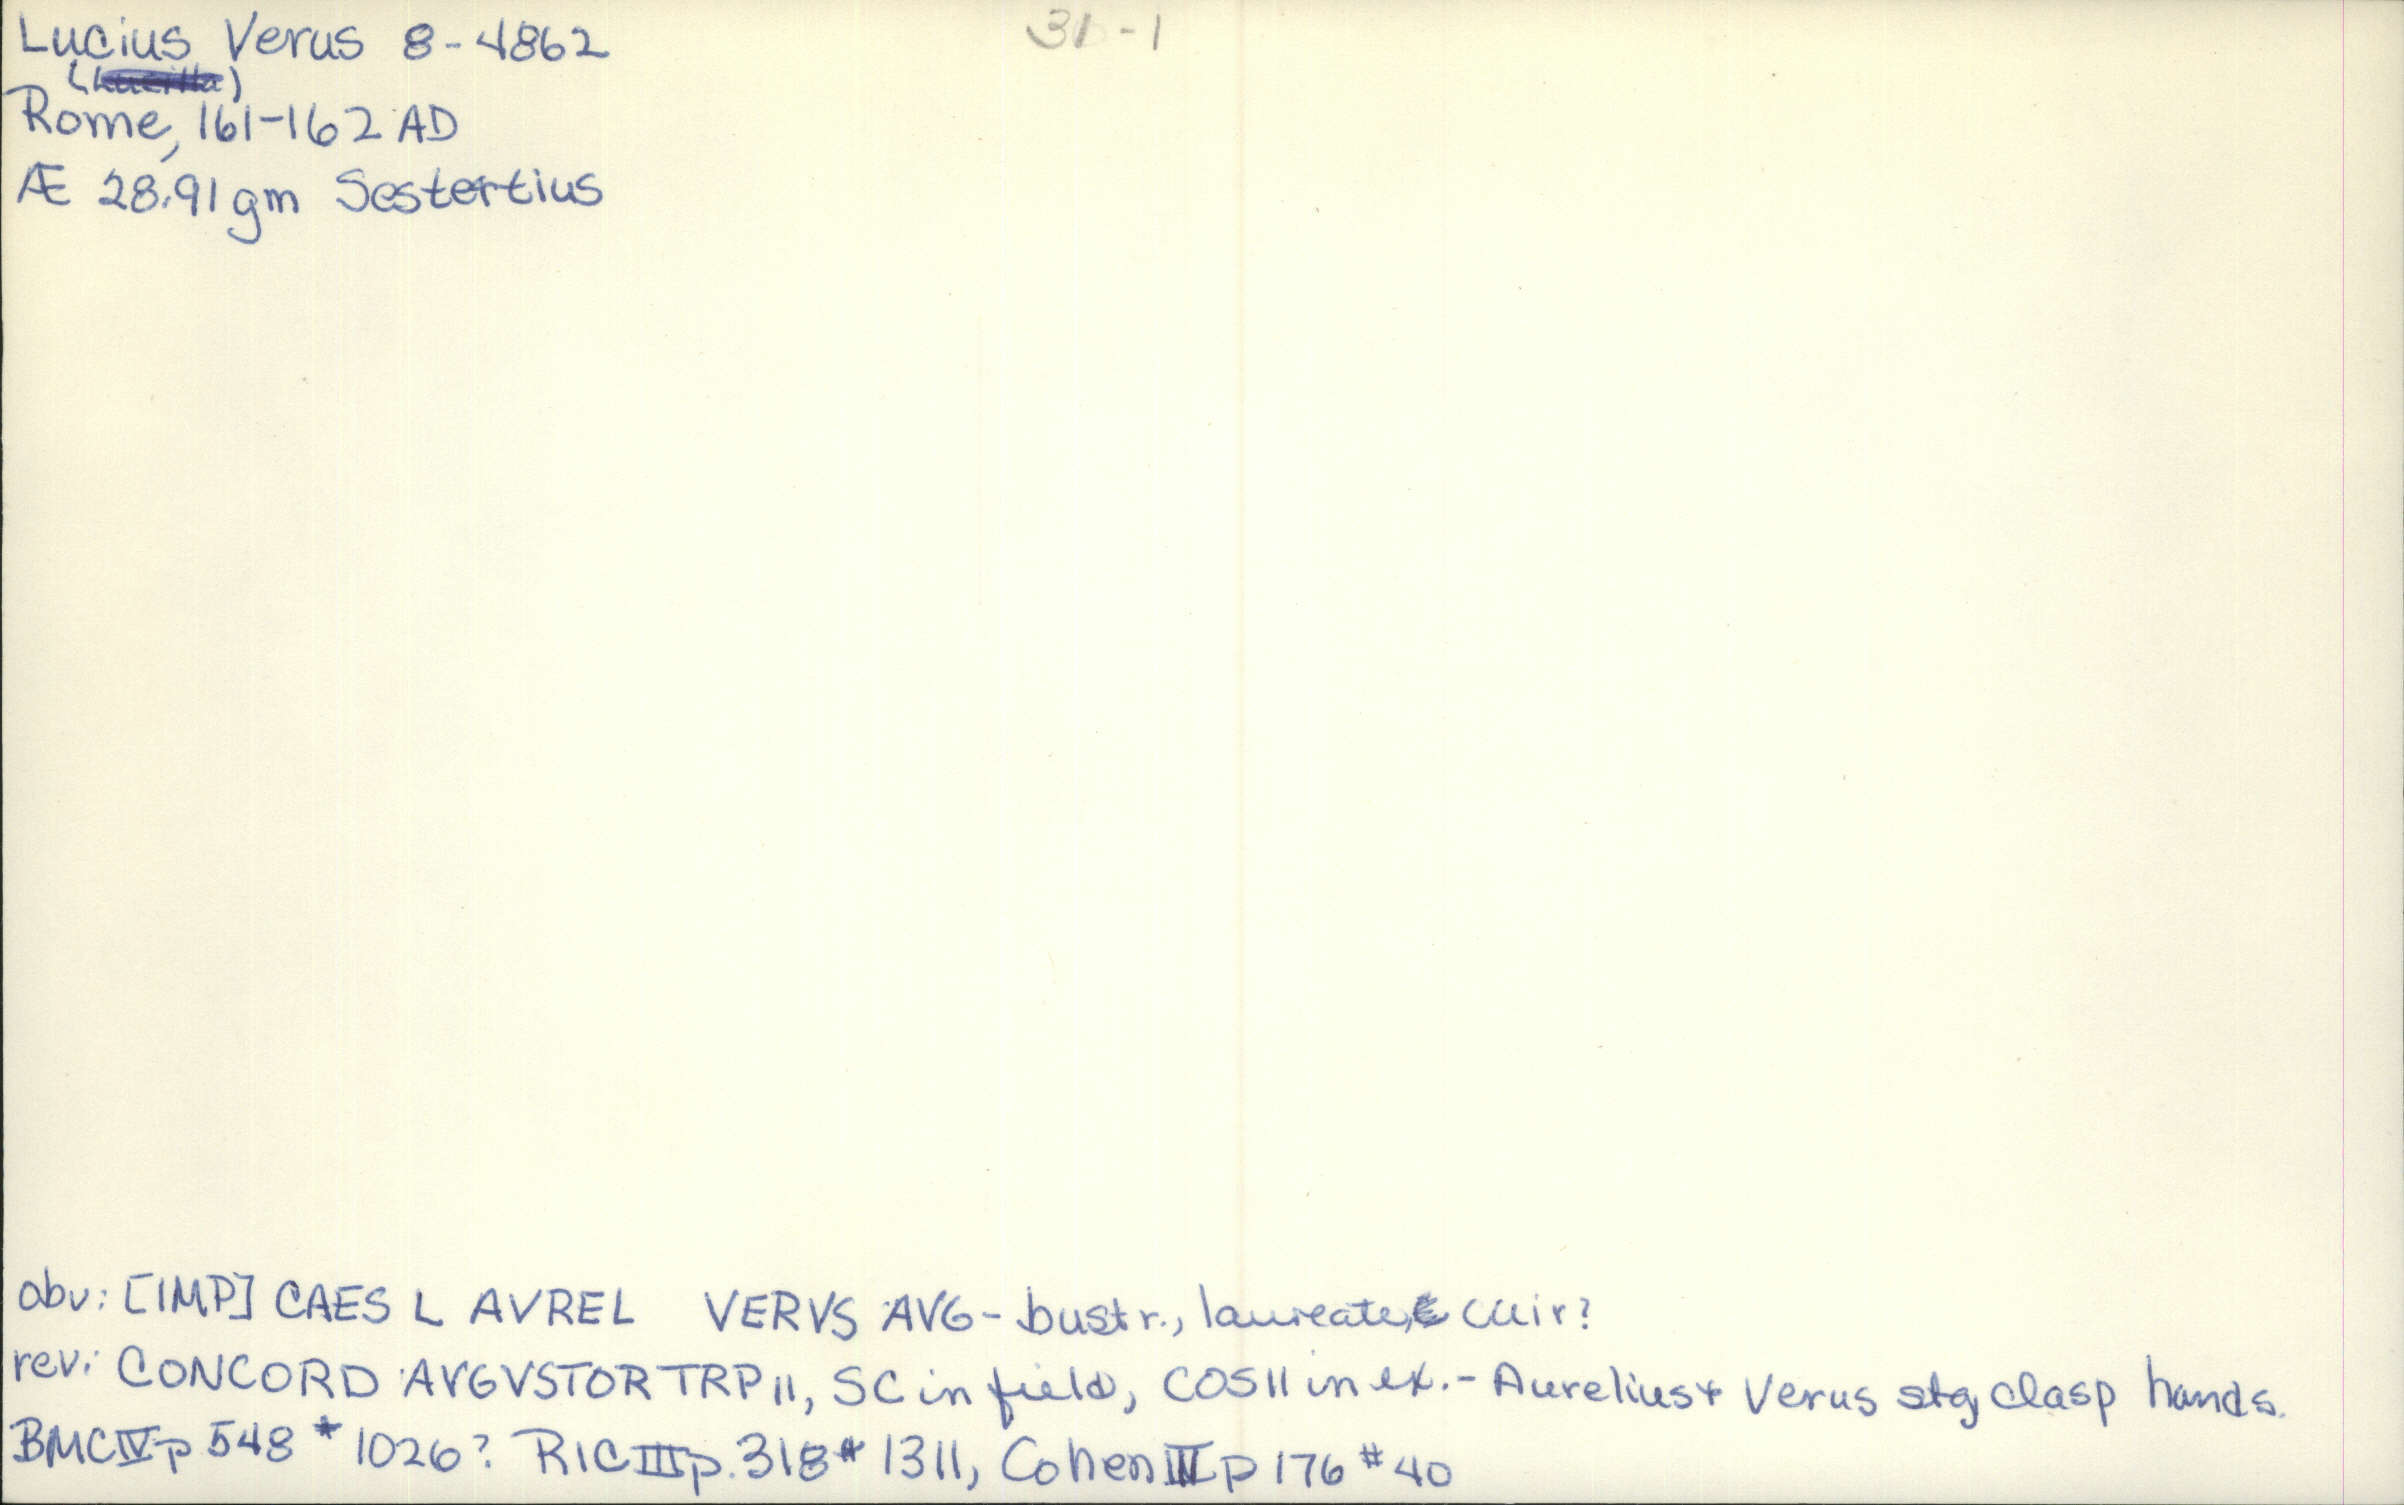 Lucius Verus 8-4862
31-1
(Lucilla)
Rome, 161-162 AD
Æ 28.91 gm Sestertius
obv: [IMP] CAES L AVREL VERVS AVG - bust r., laureate, cuir?
rev: CONCORD AVGVSTOR TRP II, SC in field, COS II in ex. - Aurelius + Verus stg clasp hands.
BMC IV p 548 # 1026? RIC III p. 318 # 1311, Cohen III p 176 # 40